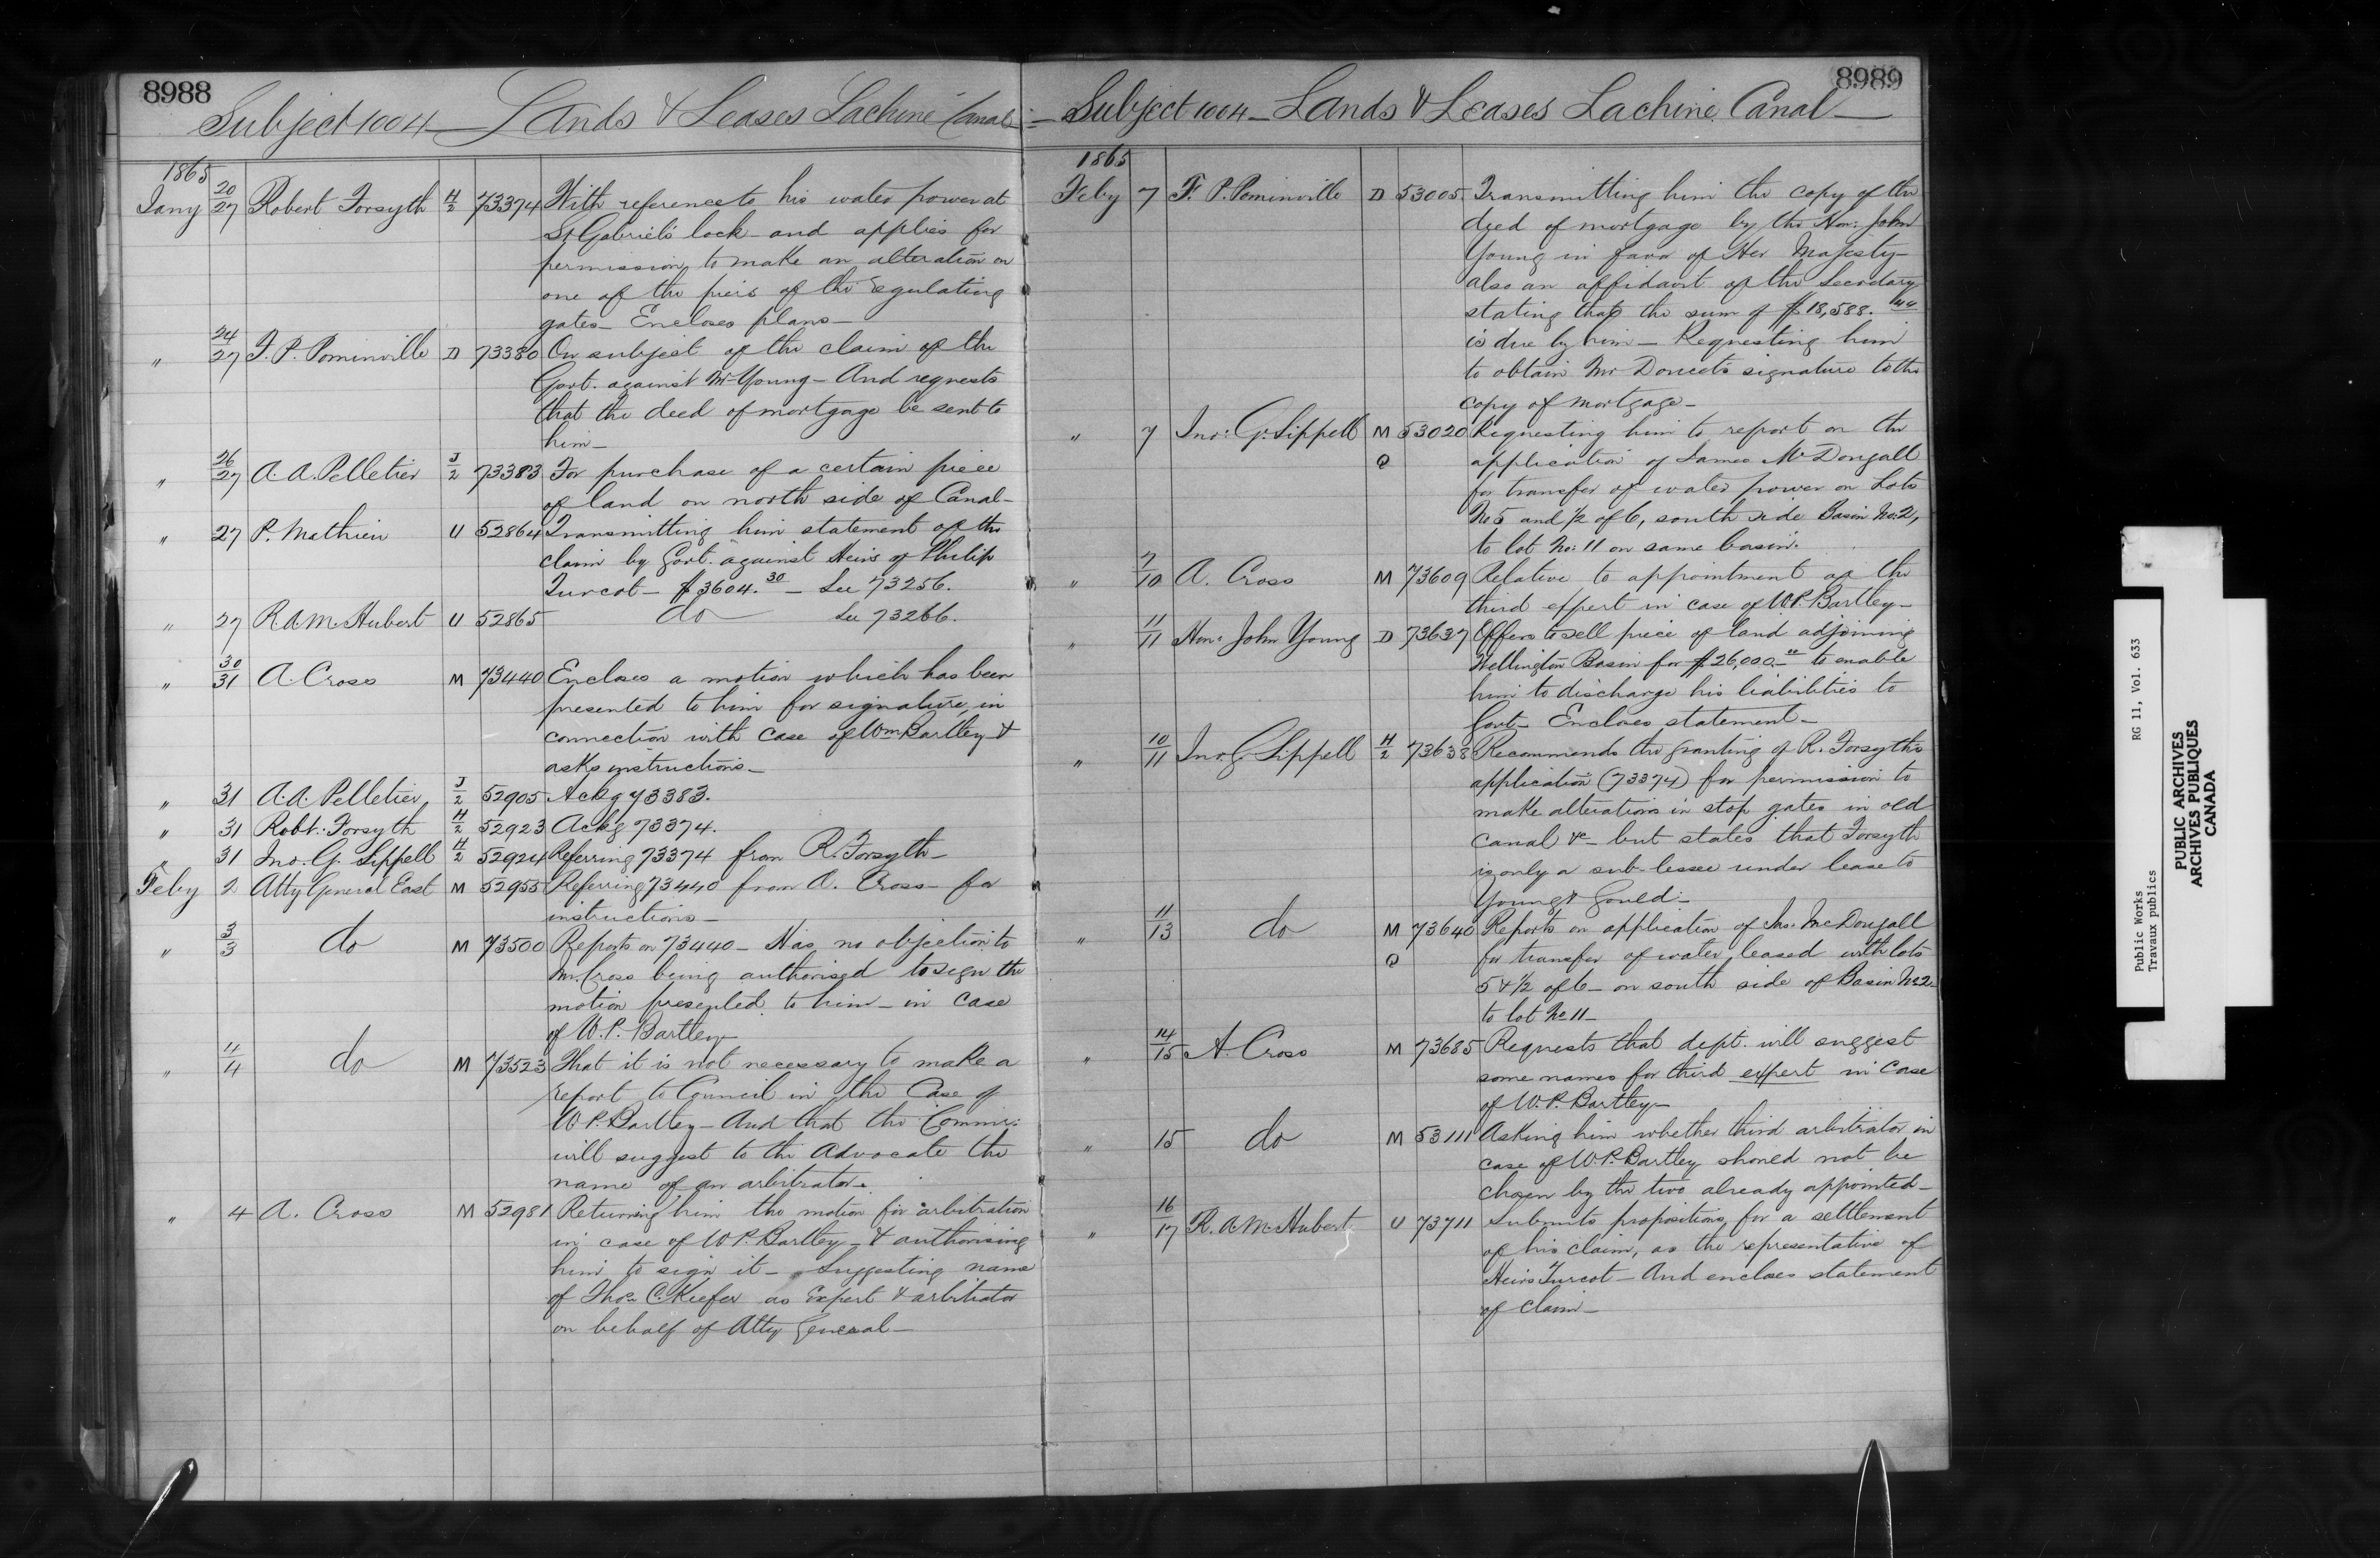 8988
Subject 1004 — Lands & Leases Lachine Canal —
1865
Jany 20/27 Robert Forsyth H/2 73374 With reference to his water power at
St Gabriel's lock - and applies for
permission to make an alteration on
one of the piers of the regulating
gates - Encloses plans -
" 24/27 F. P. Pominville D 73380 On subject of the claim of the
Govt. against Mr Young - And requests
that the deed of mortgage be sent to
him -
" 26/27 A. A. Pelletier J/2 73383 For purchase of a certain piece
of land on north side of Canal -
" 27 P. Mathieu U 52864 Transmitting him statement of the
claim by Govt. against Heirs of Philip
Turcot - $3604.30 - See 73256.
" 27 R A M Hubert U 52865 do See 73266.
" 30/31 A. Cross M 73440 Encloses a motion which has been
presented to him for signature, in
connection with case of Wm Bartley &
asks instructions -
" 31 A. A. Pelletier J/2 52905 Ackg 73383.
" 31 Robt. Forsyth H/2 52923 Ackg 73374.
" 31 Jno. G. Sippell H/2 52924 Referring 73374 from R. Forsyth -
Feby 2 Atty General East M 52955 Referring 73440 from A. Cross - for
instructions -
" 3/3 do M 73500 Reports on 73440 - Has no objection to
Mr. Cross being authorised to sign the
motion presented to him - in case
of W. P. Bartley
" 4/4 do M 73523 That it is not necessary to make a
report to Council in the Case of
W P. Bartley - And that the Commr:
will suggest to the Advocate the
name of an arbitrator.
" 4 A. Cross M 52981 Returning him the motion for arbitration
in case of W P. Bartley - & authorising
him to sign it - Suggesting name
of Thos. C. Keefer as Expert & arbitrator
on behalf of Atty General -
8989
— Subject 1004 — Lands & Leases Lachine Canal —
1865
Feby 7 F. P. Pominville D 53005 Transmitting him the copy of the
deed of mortgage by the Hon: John
Young in favor of Her Majesty -
also an affidavit of the Secretary
stating that the sum of $18,588.44
is due by him - Requesting him
to obtain Mr Doucet's signature to the
copy of mortgage -
" 7 Jno: G. Sippell M Q 53020 Requesting him to report on the
application of James McDougall
for transfer of water power on Lots
No 5 and 1/2 of 6, south side Basin No: 2,
to lot No: 11 on same basin.
" 7/10 A. Cross M 73609 Relative to appointment of the
third expert in case of W. P. Bartley -
" 11/11 Hon: John Young D 73637 Offers to sell piece of land adjoining
Wellington Basin for $26,000.00 to enable
him to discharge his liabilities to
Govt - Encloses statement -
" 10/11 Jno. G. Sippell H/2 73638 Recommends the granting of R. Forsyth's
application (73374) for permission to
make alterations in stop gates in old
canal &c - but states that Forsyth
is only a sub-lessee under lease to
Young & Gould -
" 11/13 do M Q 73640 Reports on application of Jas: McDougall
for transfer of water leased with lots
5 & 1/2 of 6 - on south side of Basin No 2
to lot No 11 -
" 14/15 A. Cross M 73685 Requests that dept. will suggest
some names for third expert in case
of W. P. Bartley -
" 15 do M 53111 Asking him whether third arbitrator in
case of W. P. Bartley should not be
chosen by the two already appointed -
" 16/17 R. A M Hubert U 73711 Submits propositions for a settlement
of his claim, as the representative of
Heirs Turcot - And encloses statement
of claim -
Public Works RG 11, Vol. 633
Travaux publics
PUBLIC ARCHIVES
ARCHIVES PUBLIQUES
CANADA